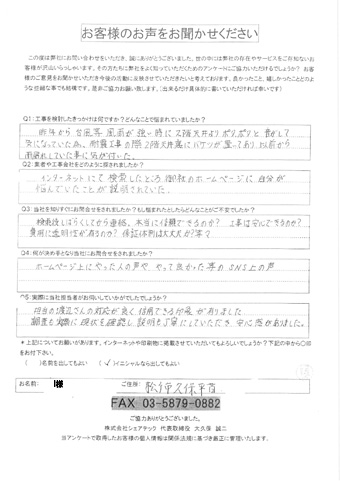 お客様のお声をお聞かせください
この度は弊社にお問い合わせをいただき、誠にありがとうございます。世の中には弊社の存在やサービスをご存知ないお
客様が沢山いらっしゃいます。その方たちに弊社をよく知っていただくためのアンケートにご協力いただけるでしょうか? お客
様のご意見をお聞かせいただき今後の活動に反映させていただきたいと考えております。良かったこと、嬉しかったことどのよう
な些細な事でも結構です。是非ご協力お願い致します。(出来るだけ具体的に書いていただければ幸いです)
Q1:工事を検討したきっかけは何ですか?どんなことで悩まれていましたか?
昨年から台風等 風雨が強い時に2階天井よりポツポツと音がして
気になっていた為、耐震工事の際2階天井裏にバケツが置いてあり以前から
雨漏れしていた事に気が付いた。
Q2:業者や工事会社をどのように探されましたか?
インターネットにて検索したところ御社のホームページに自分が
悩んでいたことが説明されていた。
Q3:当社を知りすぐにお問合せをされましたか?もし悩まれたとしたらどんなことがご不安でしたか?
検索後しばらくしてから連絡、本当に信頼できるのか? 工事は安心できるのか?
費用に透明性が有るのか? 保証体制は大丈夫か?等々
Q4:何が決め手となり当社にお問合せをされましたか?
ホームページ上にやった人の声や、やって良かった等のSNS上の声
Q5:実際に当社担当者がお伺いしていかがでしたでしょうか?
担当の渡辺さんの対応が良く信用できる印象が有りました
調査も実際に現状を確認し説明も丁寧にしていただき、安心感がありました。
*上記についてお願いがあります。インターネットや印刷物に掲載させていただいてもよろしいでしょうか?下記の中から〇印
をお付け下さい。
( )名前を出してもよい ( ✓ )イニシャルなら出してもよい
お名前: I様
ご住所:
FAX 03-5879-0882
ご協力ありがとうございました。
株式会社シェアテック 代表取締役 大久保 誠二
※アンケートで取得したお客様の個人情報は関係法規に基づき厳正に管理いたします。